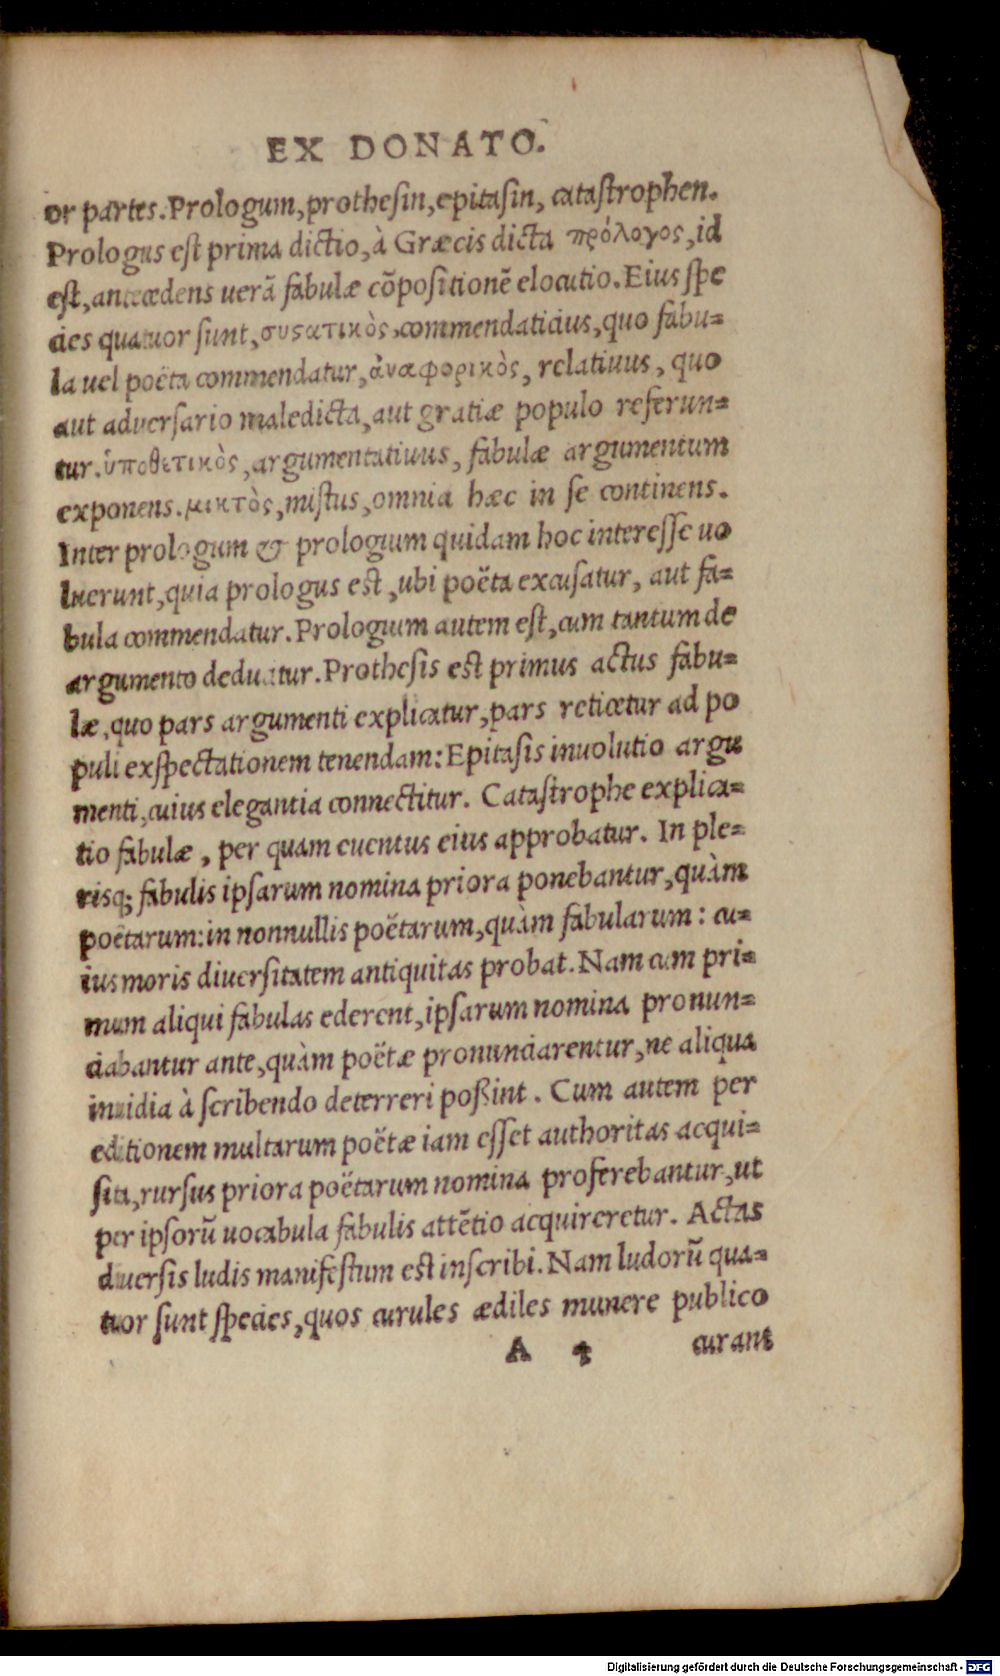 EX DONATO.
or partes. Prologum, prothesin, epitasin, catastrophen.
Prologus est prima dictio, à Græcis dicta πρόλογος, id
est, antecedens uerã fabulæ cõpositionẽ elocutio. Eius spe
cies quatuor sunt, συϛατικὸς, commendaticius, quo fabu=
la uel poëta commendatur, ἀναφορικὸς, relatiuus, quo
aut aduersario maledicta, aut gratiæ populo referun=
tur. ὑποθετικὸς, argumentatiuus, fabulæ argumentum
exponens. μικτὸς, mistus, omnia hæc in se continens.
Inter prologum & prologium quidam hoc interesse uo
luerunt, quia prologus est, ubi poëta excusatur, aut fa=
bula commendatur. Prologium autem est, cum tantum de
argumento deducitur. Prothesis est primus actus fabu=
læ, quo pars argumenti explicatur, pars reticetur ad po
puli exspectationem tenendam: Epitasis inuolutio argu
menti, cuius elegantia connectitur. Catastrophe explica=
tio fabulæ, per quam euentus eius approbatur. In ple=
risq; fabulis ipsarum nomina priora ponebantur, quàm
poëtarum: in nonnullis poëtarum, quàm fabularum: cu=
ius moris diuersitatem antiquitas probat. Nam cum pri=
mum aliqui fabulas ederent, ipsarum nomina pronun=
ciabantur ante, quàm poëtæ pronunciarentur, ne aliqua
inuidia à scribendo deterreri poßint. Cum autem per
editionem multarum poëtæ iam esset authoritas acqui=
sita, rursus priora poëtarum nomina proferebantur, ut
per ipsorũ uocabula fabulis attẽtio acquireretur. Actas
diuersis ludis manifestum est inscribi. Nam ludorũ qua=
tuor sunt species, quos curules ædiles munere publico
A 4 curant
Digitalisierung gefördert durch die Deutsche Forschungsgemeinschaft - DFG